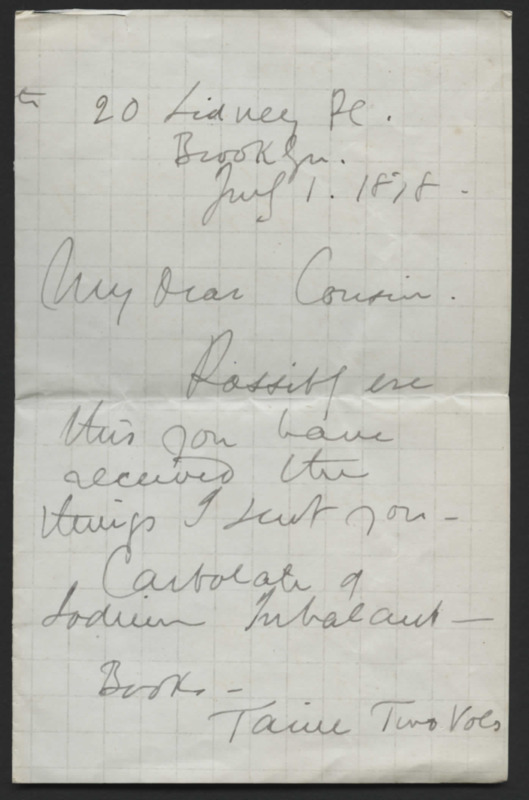 20 Sidney Pl.
Brooklyn.
July 1. 1878.
My Dear Cousin.
Possibly ere
this you have
received the
things I sent you -
Carbolate of
Sodium Inhalant -
Books -
Taine Two Vols